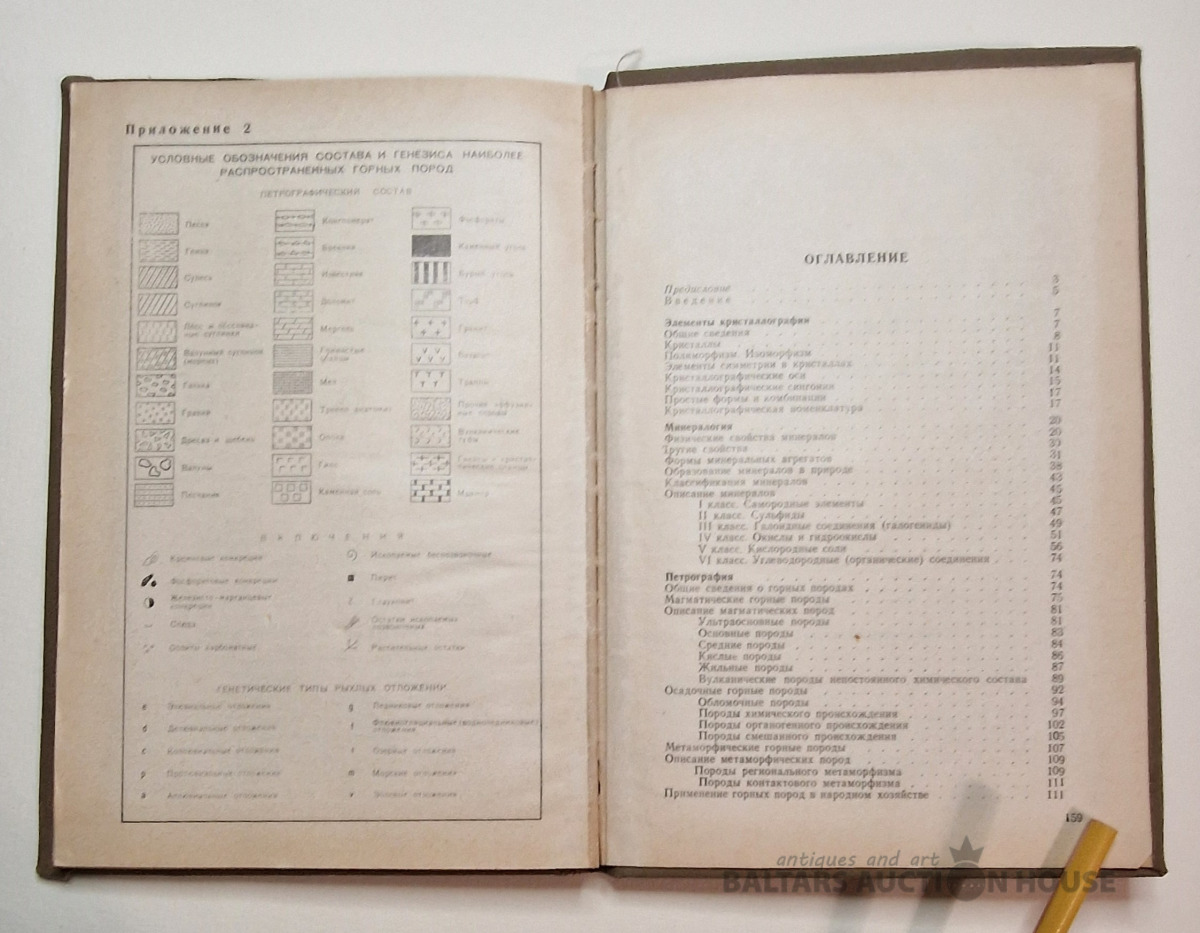 Приложение 2
УСЛОВНЫЕ ОБОЗНАЧЕНИЯ СОСТАВА И ГЕНЕЗИСА НАИБОЛЕЕ
РАСПРОСТРАНЕННЫХ ГОРНЫХ ПОРОД
ПЕТРОГРАФИЧЕСКИЙ СОСТАВ
Пески
Глина
Супесь
Суглинок
Валунный суглинок
(морена)
Галька
Гравий
Дресва и щебень
Валуны
Песчаник
Конгломерат
Брекчия
Известняк
Доломит
Мергель
Глинистые
сланцы
Мел
Опока
Гипс
Каменная соль
Фосфориты
Каменный уголь
Бурый уголь
Торф
Гранит
Траппы
Вулканические
туфы
Мрамор
ВКЛЮЧЕНИЯ
Кремневые конкреции
Фосфоритовые конкреции
Железисто-марганцевые
конкреции
Слюда
Ископаемые беспозвоночные
Пирит
Глауконит
Остатки ископаемых
позвоночных
Растительные остатки
ГЕНЕТИЧЕСКИЕ ТИПЫ РЫХЛЫХ ОТЛОЖЕНИЙ
e Элювиальные отложения
d Делювиальные отложения
c Коллювиальные отложения
p Пролювиальные отложения
a Аллювиальные отложения
g Ледниковые отложения
f Флювиогляциальные (водноледниковые)
отложения
l Озерные отложения
m Морские отложения
v Эоловые отложения
ОГЛАВЛЕНИЕ
Предисловие 3
Введение 5
Элементы кристаллографии 7
Общие сведения 7
Кристаллы 8
Полиморфизм. Изоморфизм 11
Элементы симметрии в кристаллах 11
Кристаллографические оси 14
Кристаллографические сингонии 15
Простые формы и комбинации 17
Кристаллографическая номенклатура 17
Минералогия 20
Физические свойства минералов 20
Другие свойства 30
Формы минеральных агрегатов 31
Образование минералов в природе 38
Классификация минералов 43
Описание минералов 45
I класс. Самородные элементы 45
II класс. Сульфиды 47
III класс. Галоидные соединения (галогениды) 49
IV класс. Окислы и гидроокислы 51
V класс. Кислородные соли 56
VI класс. Углеводородные (органические) соединения 74
Петрография 74
Общие сведения о горных породах 74
Магматические горные породы 75
Описание магматических пород 81
Ультраосновные породы 81
Основные породы 83
Средние породы 84
Кислые породы 86
Жильные породы 87
Вулканические породы непостоянного химического состава 89
Осадочные горные породы 92
Обломочные породы 94
Породы химического происхождения 97
Породы органогенного происхождения 102
Породы смешанного происхождения 105
Метаморфические горные породы 107
Описание метаморфических пород 109
Породы регионального метаморфизма 109
Породы контактового метаморфизма 111
Применение горных пород в народном хозяйстве 111
159
antiques and art
BALTARS AUCTION HOUSE